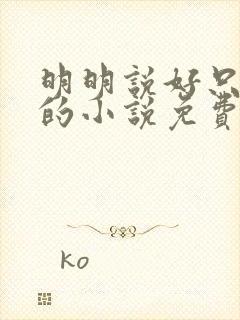 明明説好只
的小説免費
ko